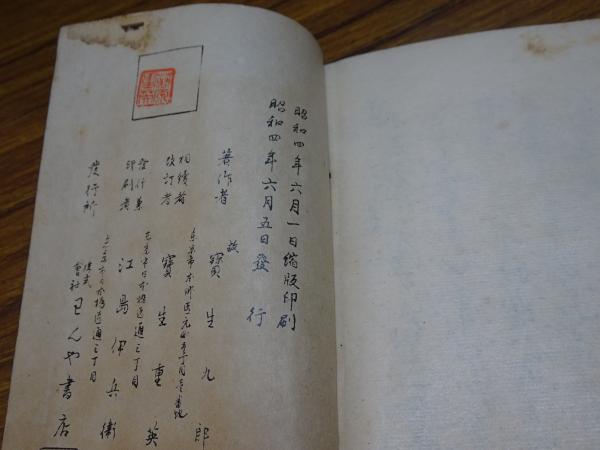 昭和四年六月一日縮版印刷
昭和四年六月五日發行
著作者 故 寳生九郎
相續者
改訂者
東京市本所區元町
寳生重英
發行兼
印刷者
東京市日本橋區通三丁目
江島伊兵衛
東京市日本橋區通三丁目
發行所
株式
會社 わんや書店